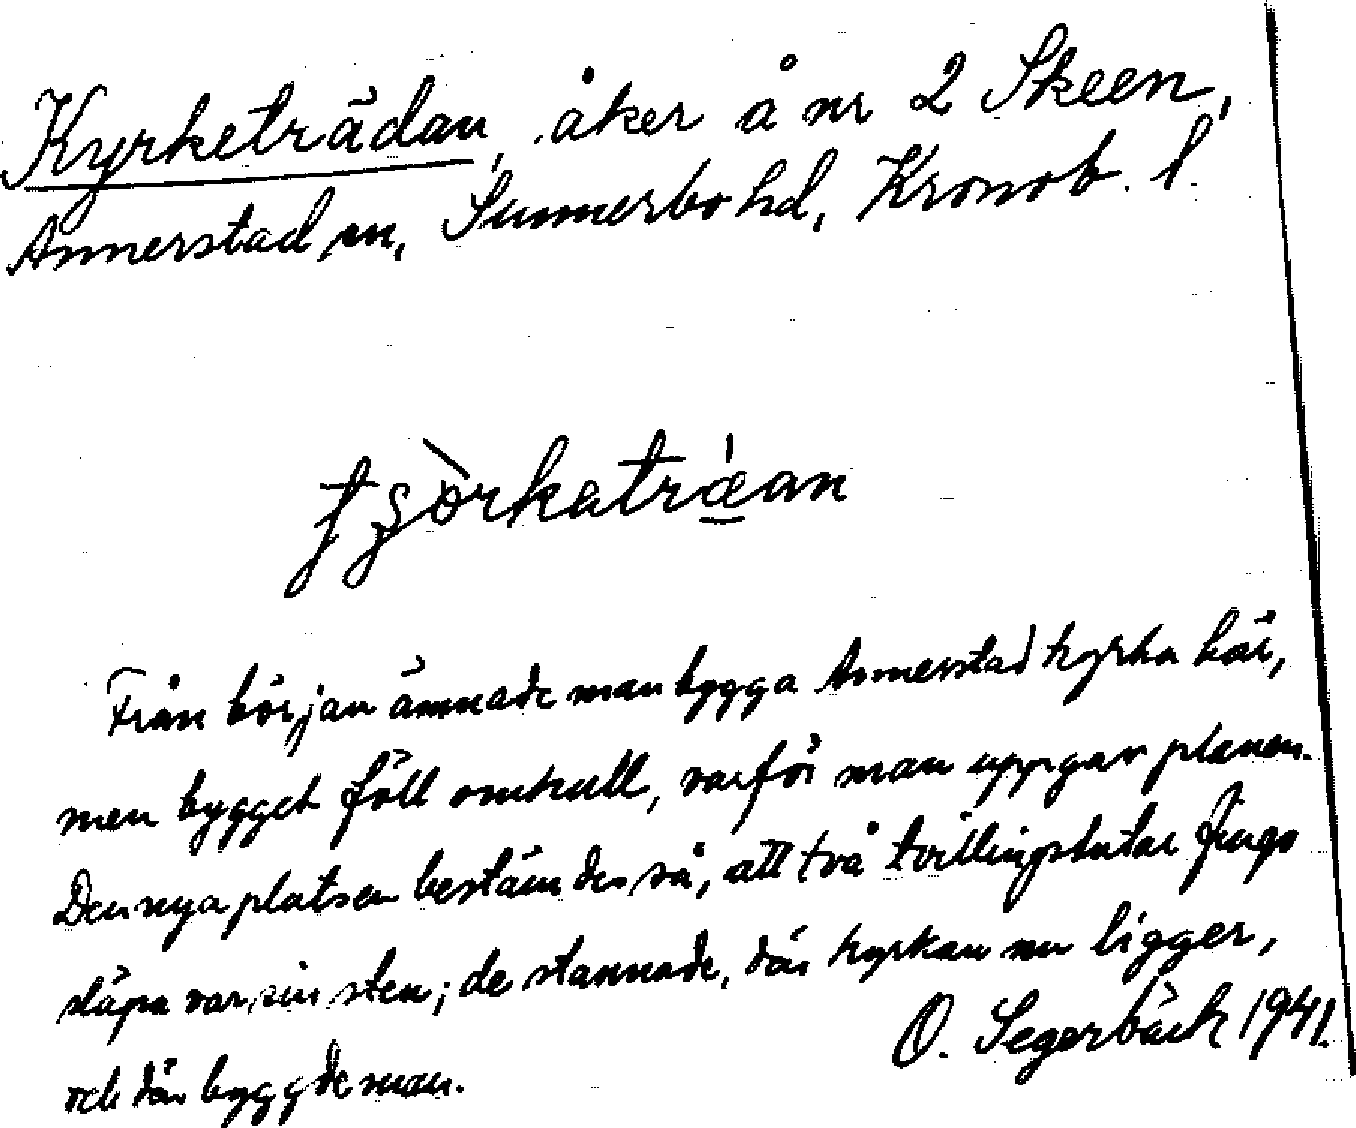 Kyrketrädan, åker å nr 2 Skeen,
Annerstad sn, Sunnerbo hd, Kronob. l.
tʂòrkatræ̍an
Från början ämnade man bygga Annerstad kyrka här,
men bygget föll omkull, varför man uppgav planen.
Den nya platsen bestämdes så, att två tvillingstutar fingo
släpa var sin sten; de stannade, där kyrkan nu ligger,
och där byggde man.
O. Segerbäck 1941.